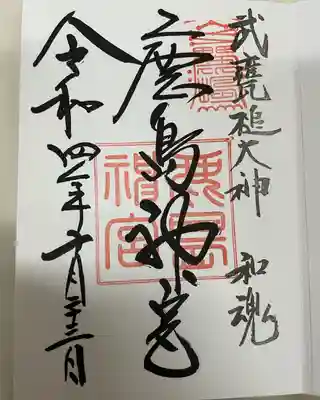 武甕槌大神 和魂
鹿島神宮
鹿島
神宮
令和四年十月二十三日